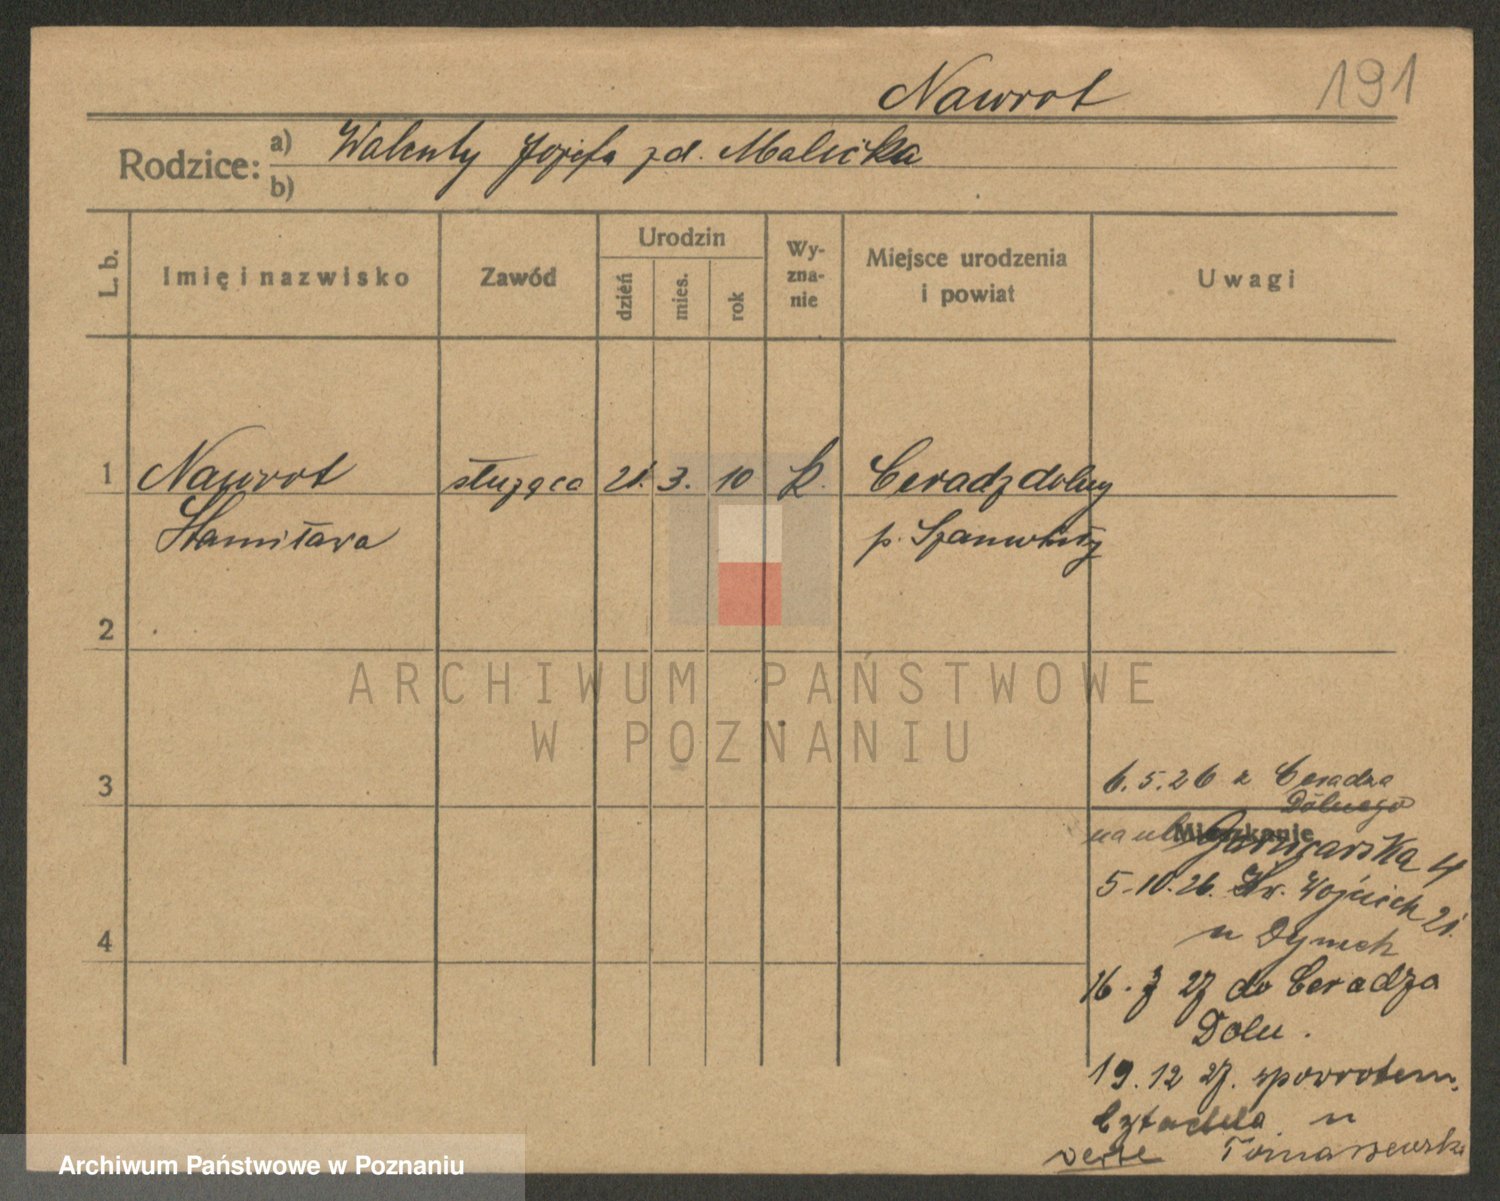 Nawrot
191
Rodzice: a) Walenty Józefa zd. Malicka
b)
L. b. Imię i nazwisko Zawód Urodzin dzień mies. rok Wy-zna-nie Miejsce urodzenia i powiat Uwagi
1 Nawrot służąca 21. 3. 10 k. Ceradz dolny
Stanisława p. Szamotuły
2
ARCHIWUM PAŃSTWOWE
W POZNANIU
3
6.5.26 z Ceradza
Dolnego
Mieszkanie
na ul. Garncarska 4
5.10.26. Św. Wojciech 21.
u Dymek
4
16. 3 27 do Ceradza
Doln.
19.12 27. spowrotem
u
verte Tomaszewski
Archiwum Państwowe w Poznaniu